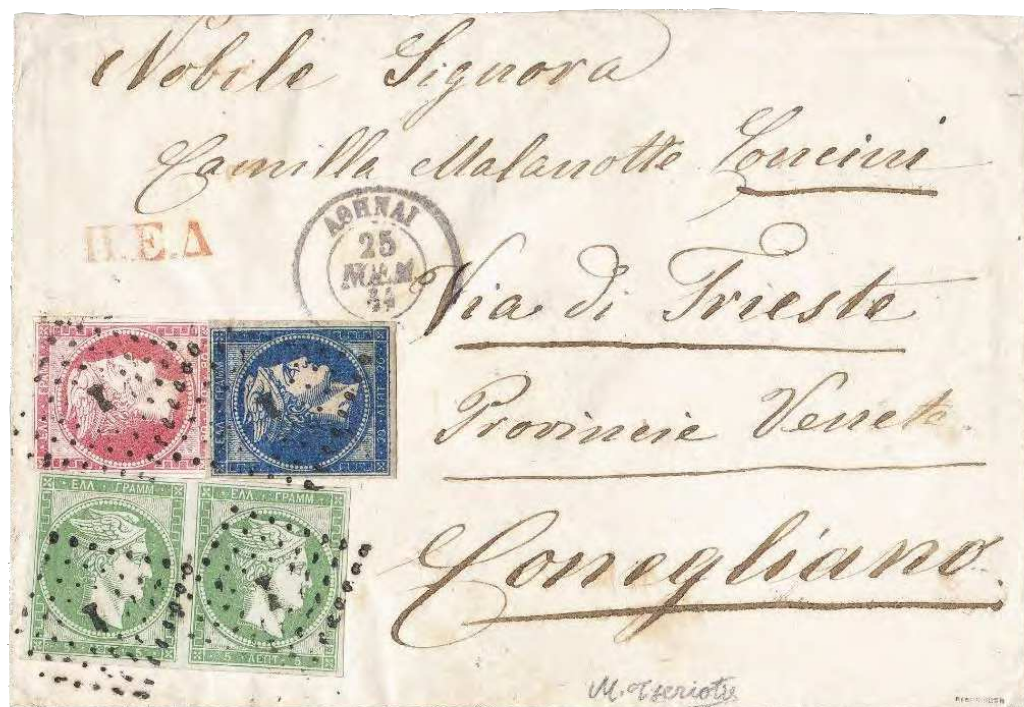 Nobile Signora
Camilla Malanotte Concini
Π.Ε.Δ
ΑΘΗΝΑΙ
25
ΝΟΕΜ
Via di Trieste
Provincie Venete
Conegliano
ΕΛΛ ΓΡΑΜΜ
ΕΛΛ ΓΡΑΜΜ
5 ΛΕΠΤ 5
5 ΛΕΠΤ 5
1
1
1
1